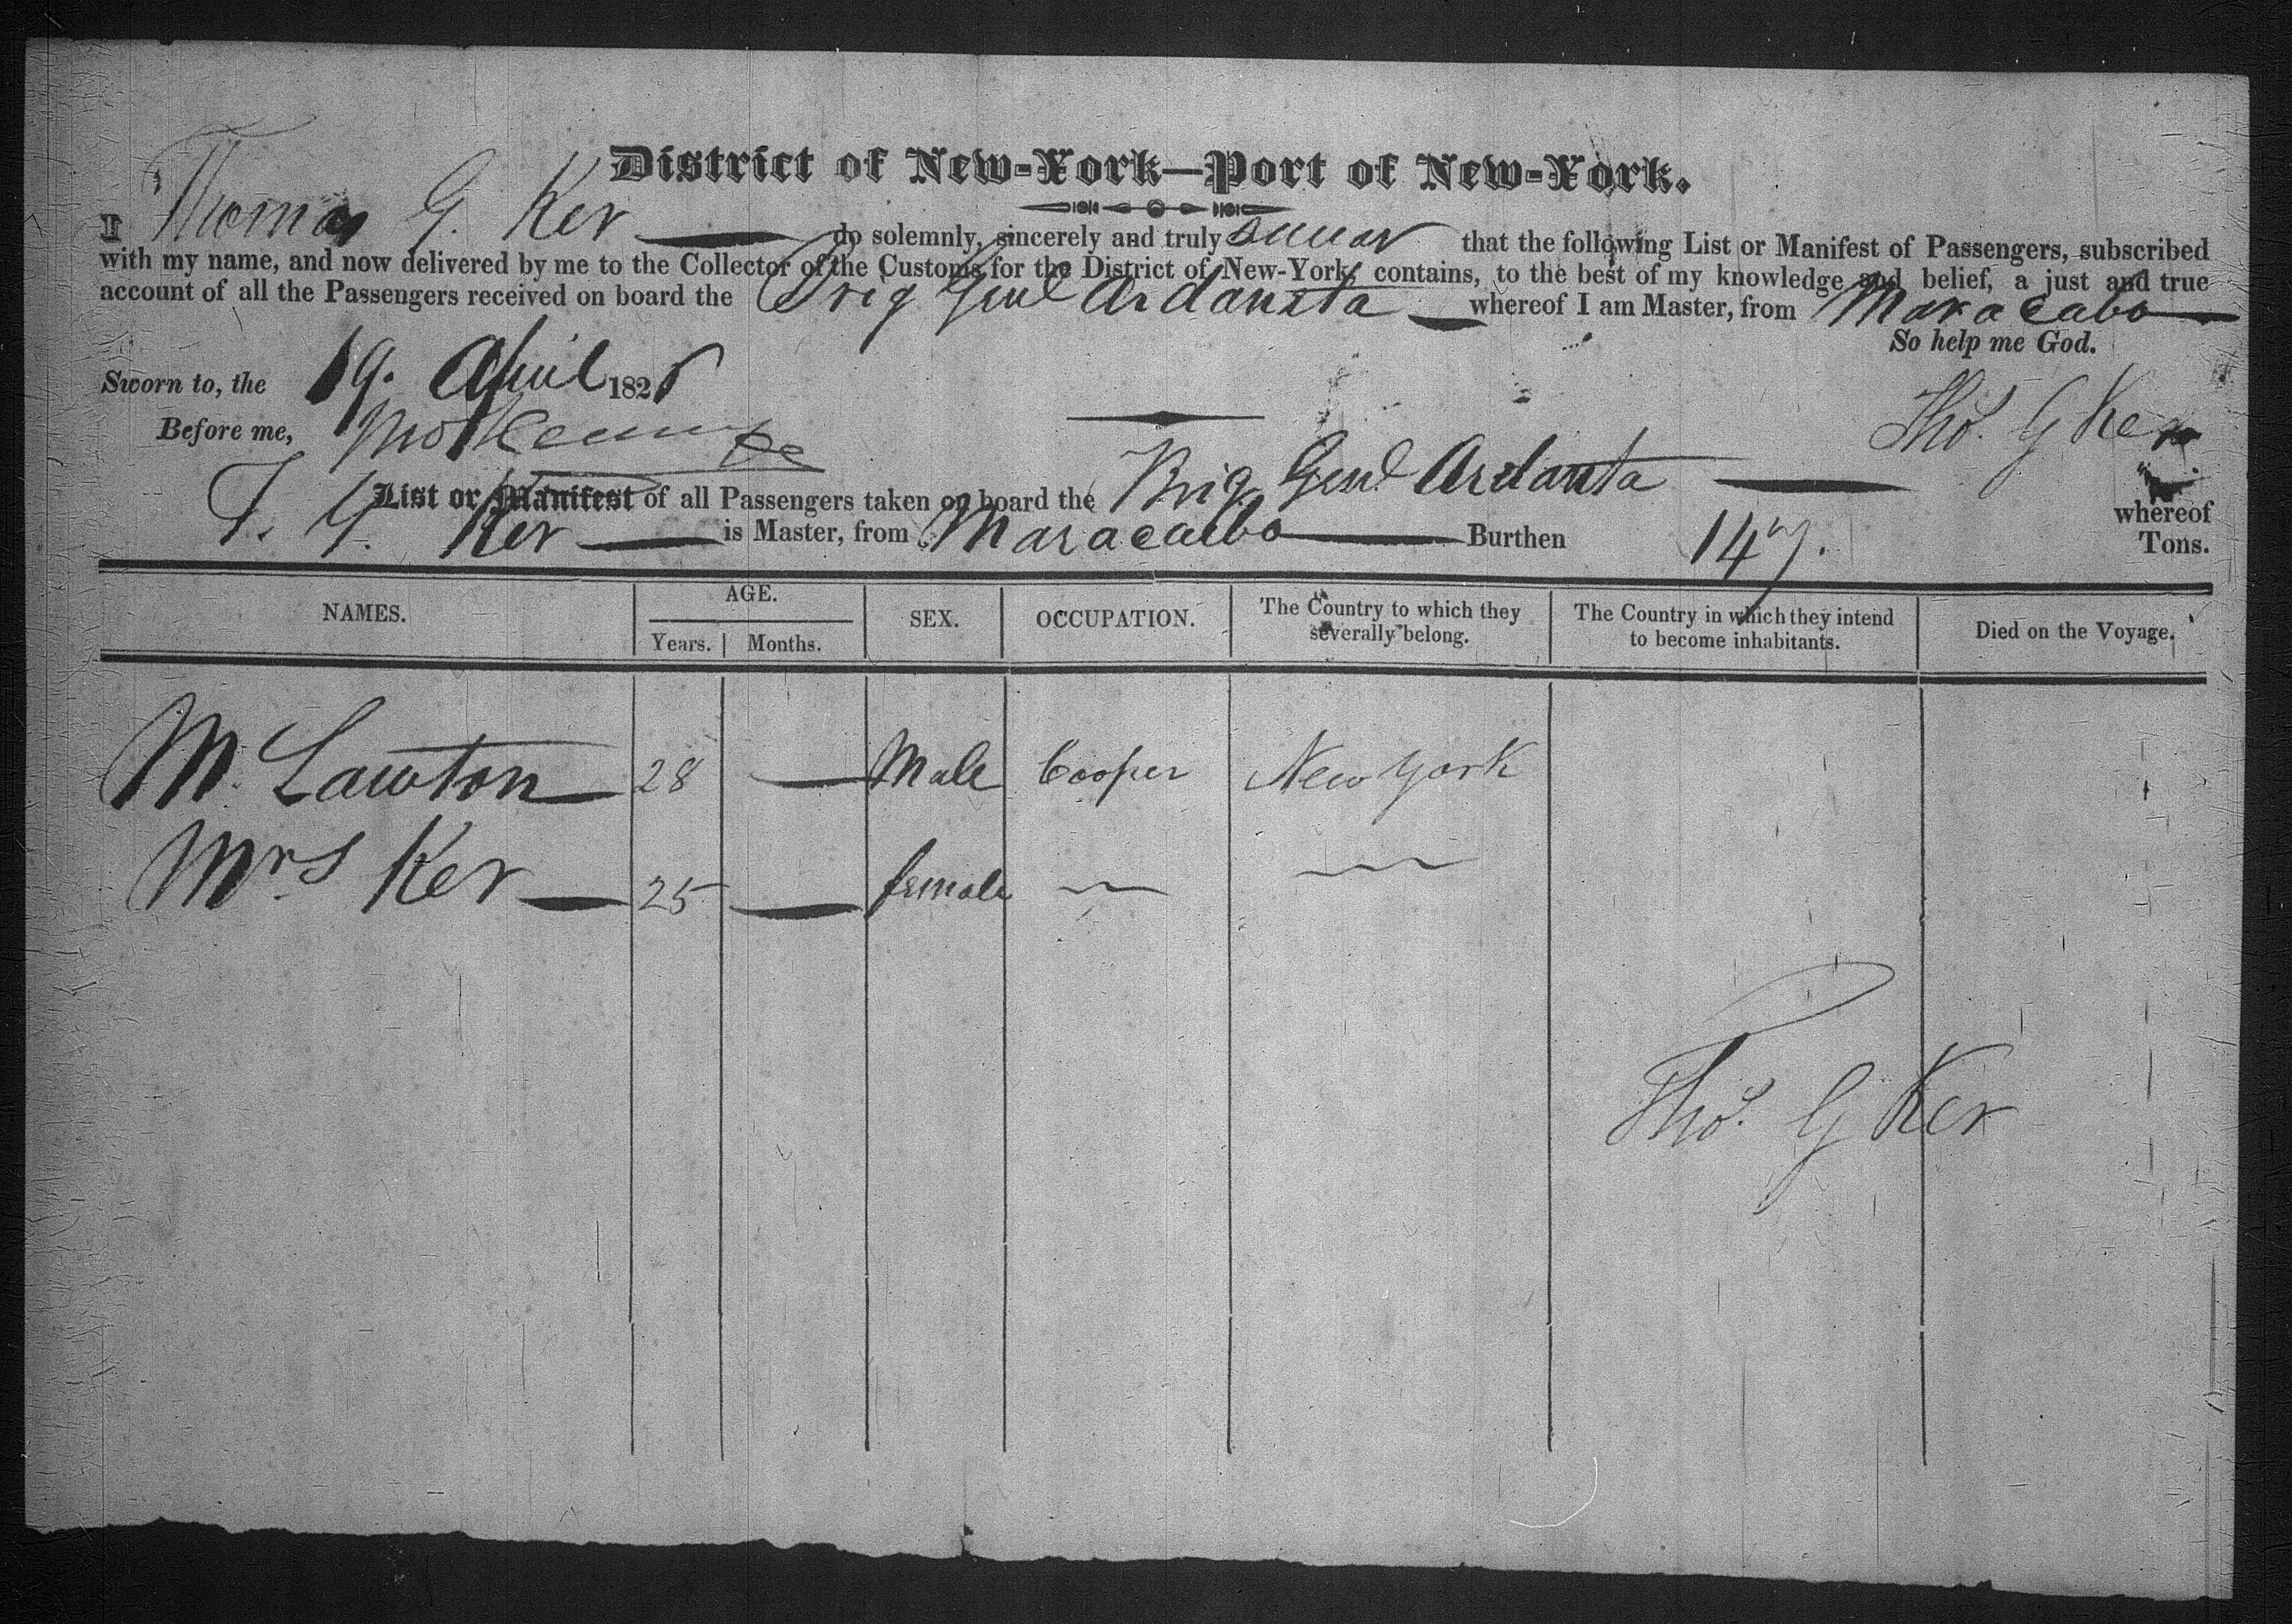 District of New-York—Port of New-York.
I Thomas G. Ker do solemnly, sincerely and truly swear that the following List or Manifest of Passengers, subscribed
with my name, and now delivered by me to the Collector of the Customs for the District of New-York, contains, to the best of my knowledge and belief, a just and true
account of all the Passengers received on board the Brig Genl Ardanzta whereof I am Master, from Maracabo
So help me God.
Sworn to, the 19. April 1828
Before me,
Thos. G Ker
List or Manifest of all Passengers taken on board the Brig Genl Ardanta whereof
T. G. Ker is Master, from Maracaibo Burthen 147. Tons.
NAMES. AGE. SEX. OCCUPATION. The Country to which they severally belong. The Country in which they intend to become inhabitants. Died on the Voyage.
Years. Months.
Mr. Lawton 28 — Male Cooper New York
Mrs Ker 25 — female — —
Thos. G Ker